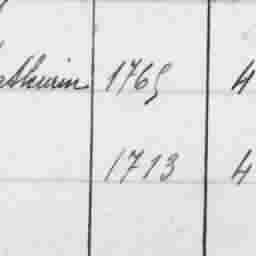 athurin 1765 4
1713 4